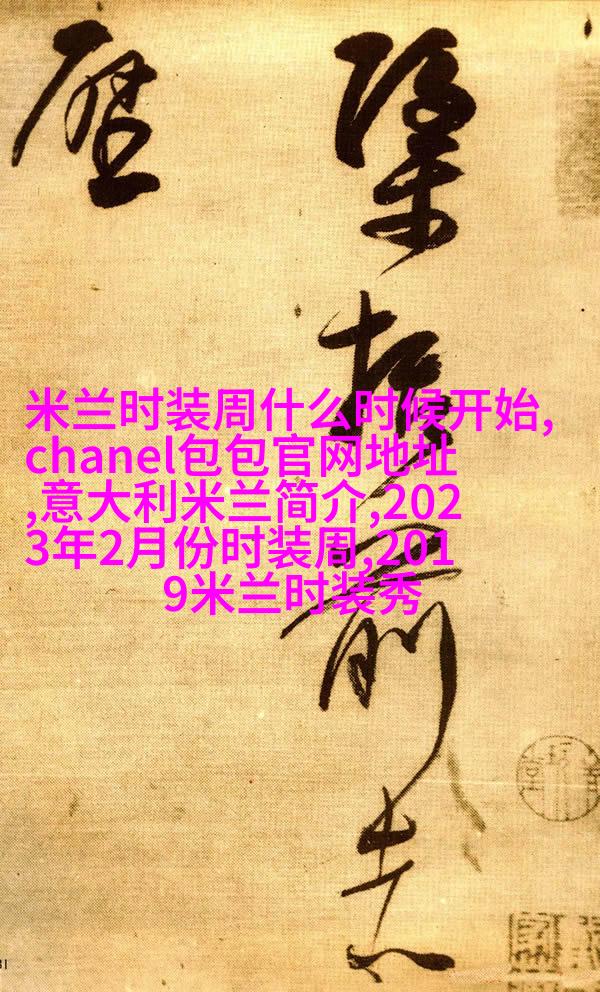 米兰时装周什么时候开始,
chanel包包官网地址
,意大利米兰简介,202
3年2月份时装周,201
9米兰时装秀
前